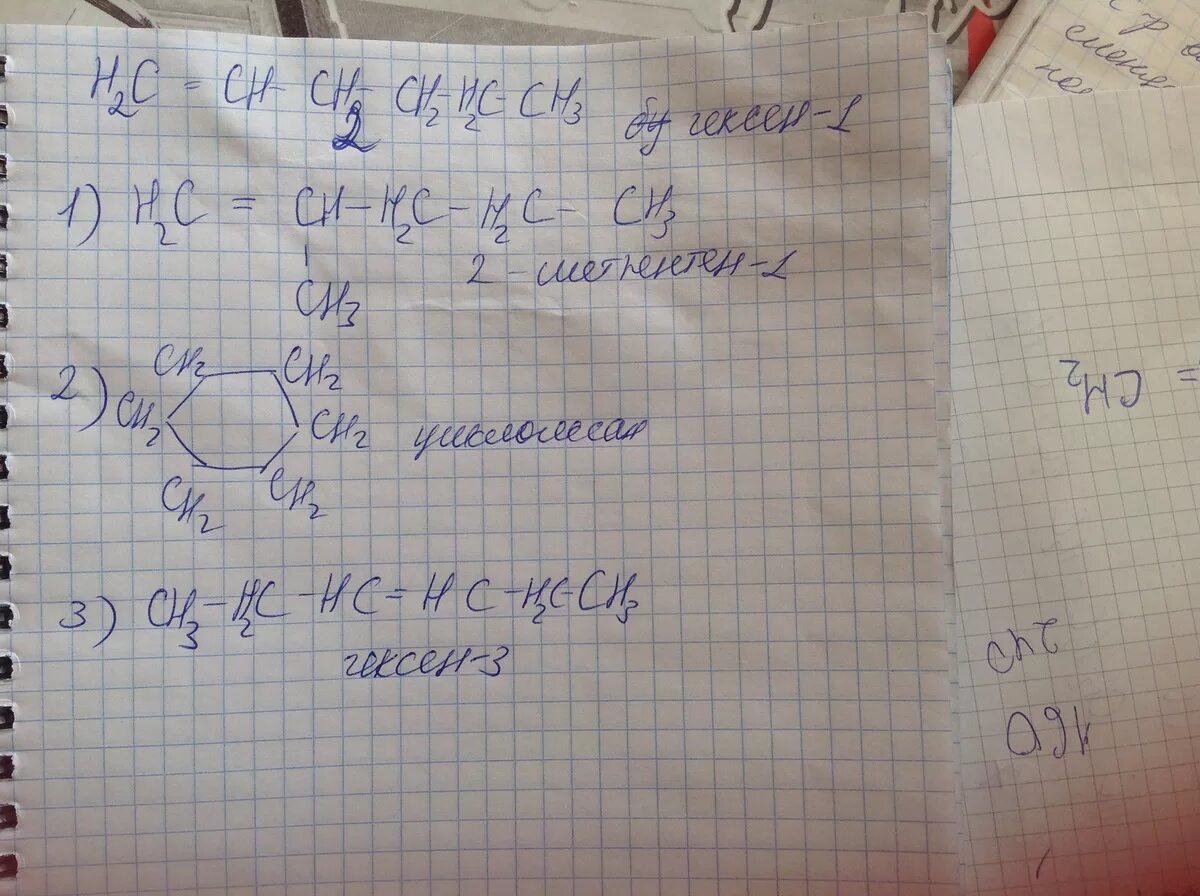 H₂C = CH - CH₂ - CH₂ - H₂C - CH₃ бу гексен-1
1) H₂C = CH - H₂C - H₂C - CH₃
CH₃
2 - метпентен-1
2) CH₂ CH₂
CH₂ CH₂ циклогексан
CH₂ CH₂
3) CH₃ - H₂C - HC = HC - H₂C - CH₃
гексен-3
= CH₂